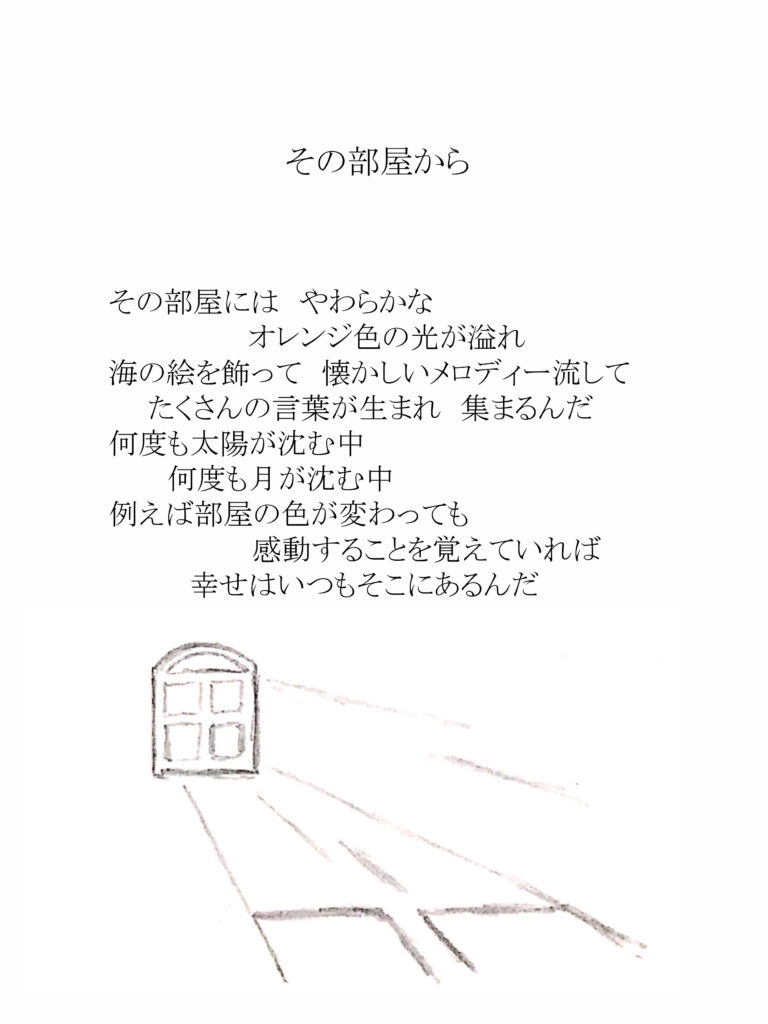 その部屋から
その部屋には　やわらかな
オレンジ色の光が溢れ
海の絵を飾って　懐かしいメロディー流して
たくさんの言葉が生まれ　集まるんだ
何度も太陽が沈む中
何度も月が沈む中
例えば部屋の色が変わっても
感動することを覚えていれば
幸せはいつもそこにあるんだ